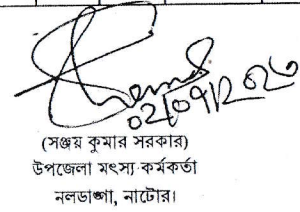 ০২/০৭/২০২৩
(সঞ্জয় কুমার সরকার)
উপজেলা মৎস্য কর্মকর্তা
নলডাঙ্গা, নাটোর।